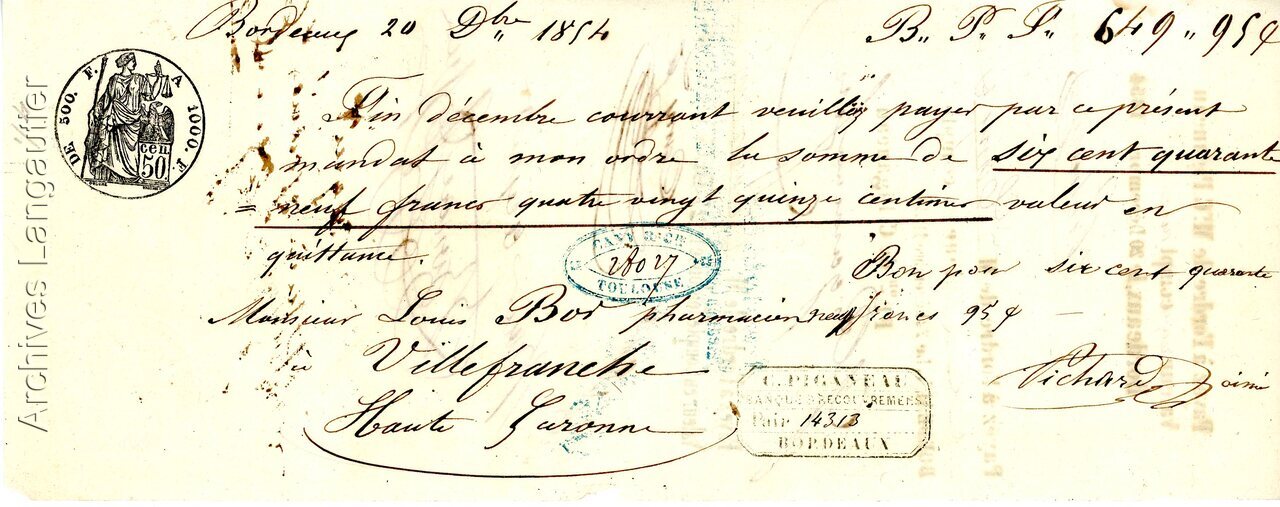 Bordeaux 20 Dbre 1854 B. P. F. 649 " 95 c
DE 500. F. A 1000 F.
cen 50
Fin décembre courrant veuillez payer par ce présent
mandat à mon ordre la somme de six cent quarante
= neuf francs quatre vingt quinze centimes valeur en
quittance.
TOULOUSE
Bon pour six cent quarante
Monsieur Louis Bor pharmacien neuf francs 95 c
à Villefranche
Haute Garonne
Vichard aîné
C. PIGANEAU
BANQUE & RECOUVREMENS
Pair 14313
BORDEAUX
Archives Langauffer